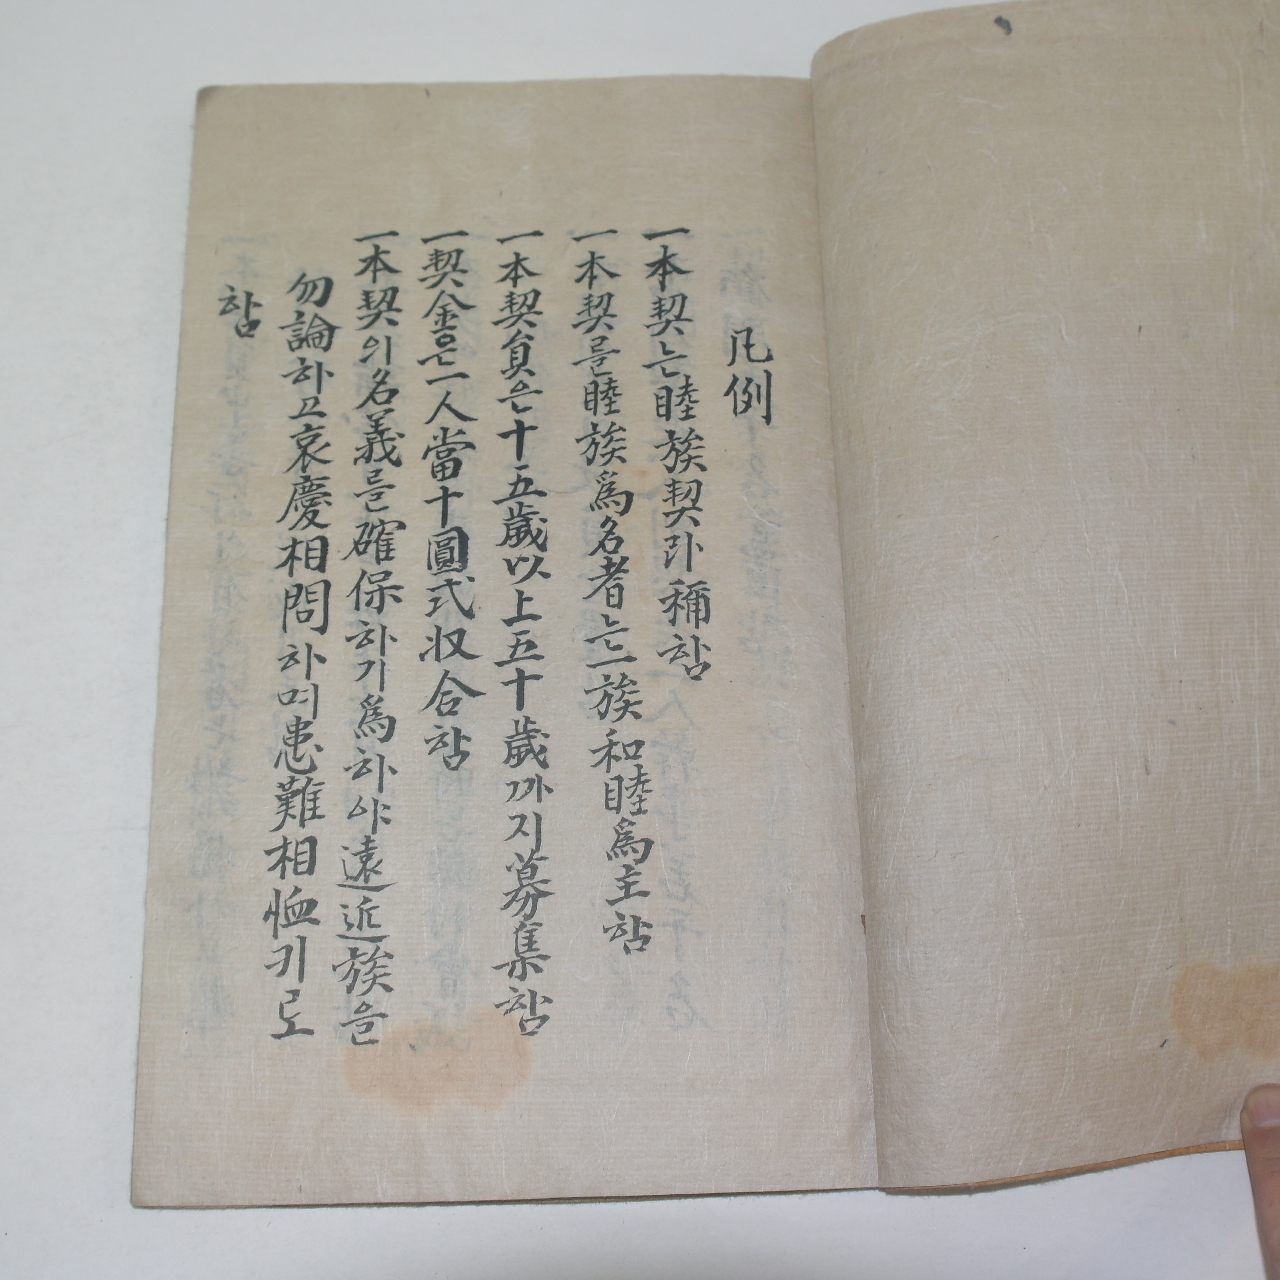 凡例
一本契는睦族契라稱함
一本契를睦族爲名者는一族和睦爲主함
一本契員은十五歲以上五十歲까지募集함
一契金은一人當十圓式収合함
一本契의名義를確保하기爲하야遠近族을
勿論하고哀慶相問하며患難相恤키로
함